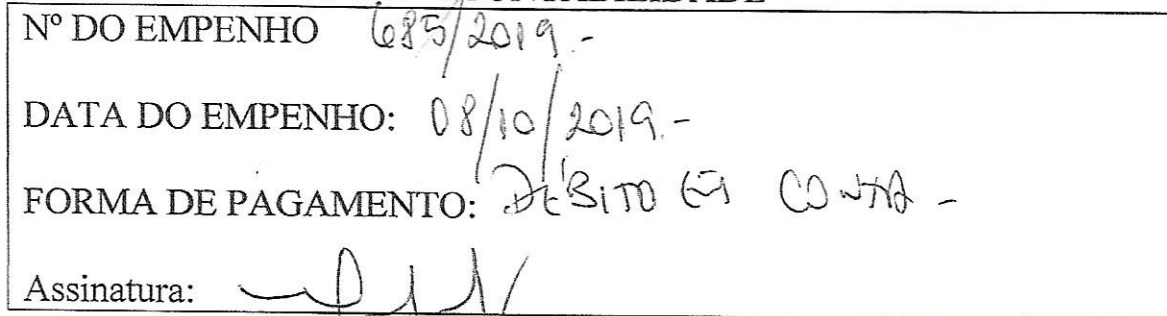 CONTABILIDADE
Nº DO EMPENHO 685/2019.-
DATA DO EMPENHO: 08/10/2019.-
FORMA DE PAGAMENTO: DÉBITO EM CONTA -
Assinatura: